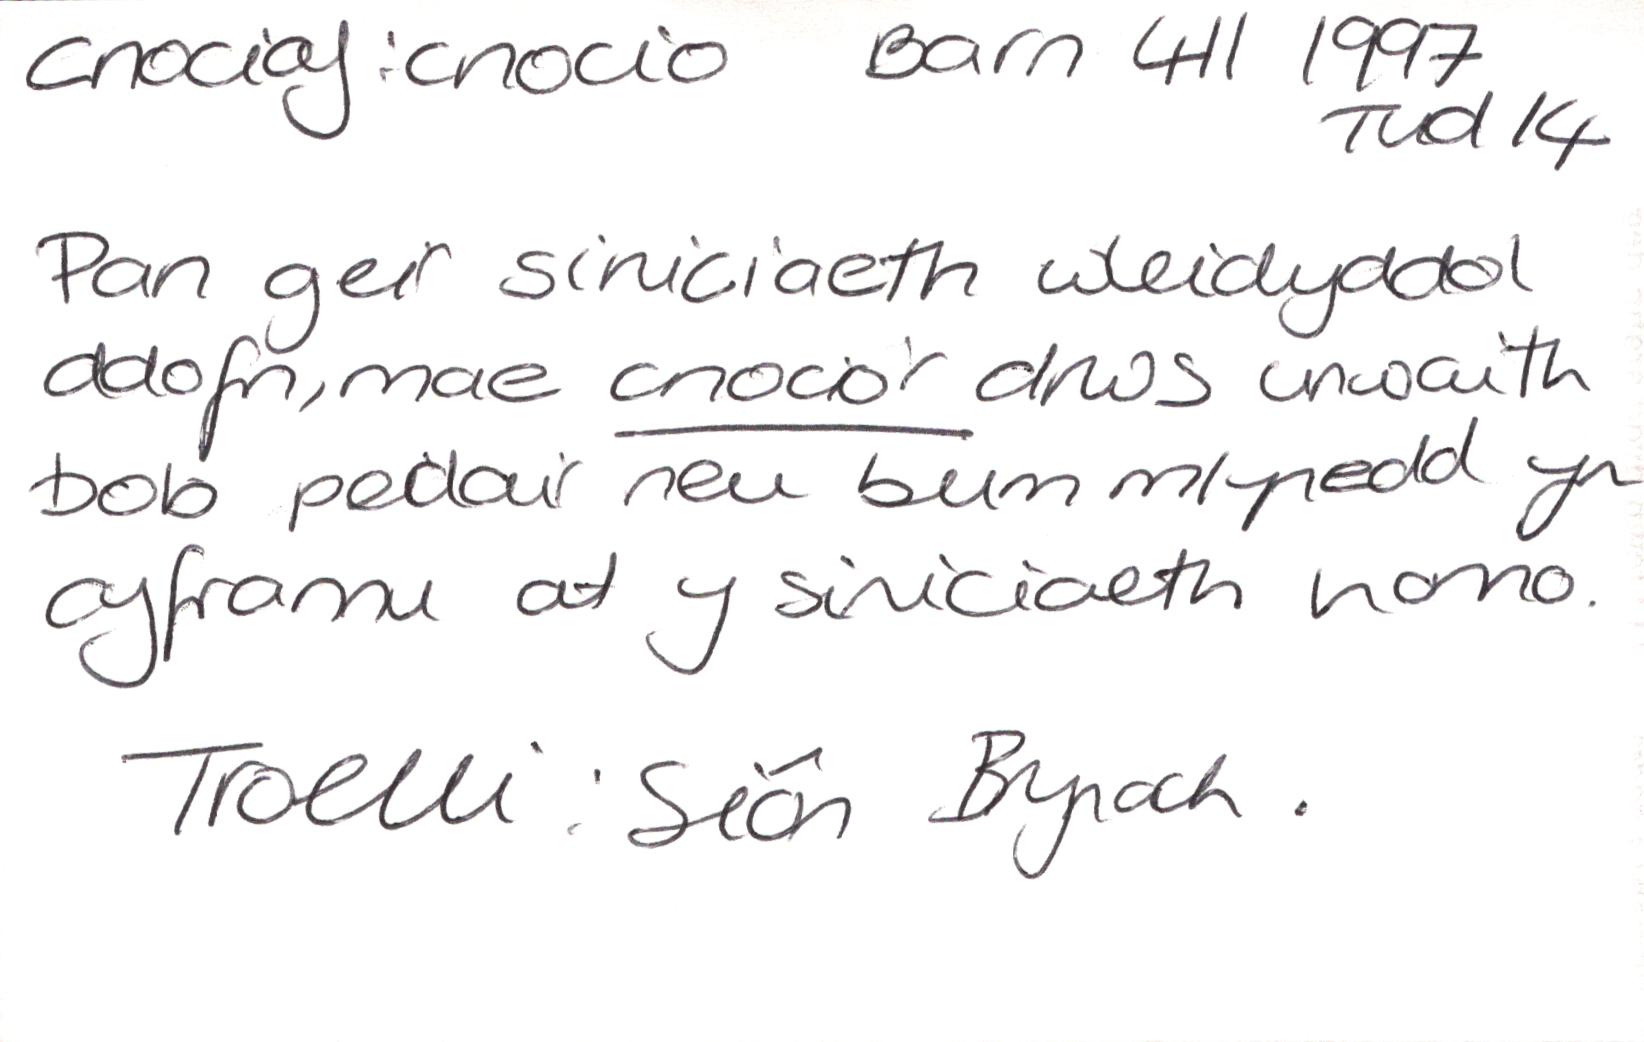 cnociaf: cnocio Barn 411 1997
Tud 14
Pan geir siniciaeth wleidyddol
ddofn, mae cnocio'r drws unwaith
bob pedair neu bum mlynedd yn
cyfrannu at y siniciaeth honno.
Troelli: Siôn Brynach.